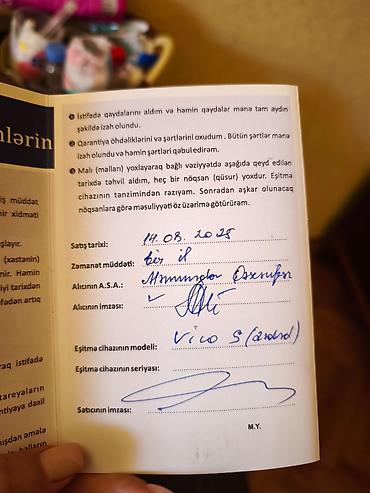 nlərin
iş müddət
ir xidməti
şlayır.
(xəstənin)
ir. Həmin
iyi tarixdən
fədən artıq
raq istifadə
tareyaların
ntiyaya daxil
nışdan əmələ
halların
❶ İstifadə qaydalarını aldım və həmin qaydalar mənə tam aydın
şəkildə izah olundu.
❷ Qarantiya öhdəliklərini və şərtlərini oxudum . Bütün şərtlər mənə
izah olundu və həmin şərtləri qəbul edirəm.
❸ Malı (malları) yoxlayaraq bağlı vəziyyətdə aşağıda qeyd edilən
tarixdə təhvil aldım, heç bir nöqsan (qüsur) yoxdur. Eşitmə
cihazının tənzimindən razıyam. Sonradan aşkar olunacaq
nöqsanlara görə məsuliyyəti öz üzərimə götürürəm.
Satış tarixi: 14.08.2025
Zəmanət müddəti: bir il
Alıcının A.S.A.:
Alıcının imzası:
Eşitmə cihazının modeli: Vico S
Eşitmə cihazının seriyası:
Satıcının imzası:
M.Y.